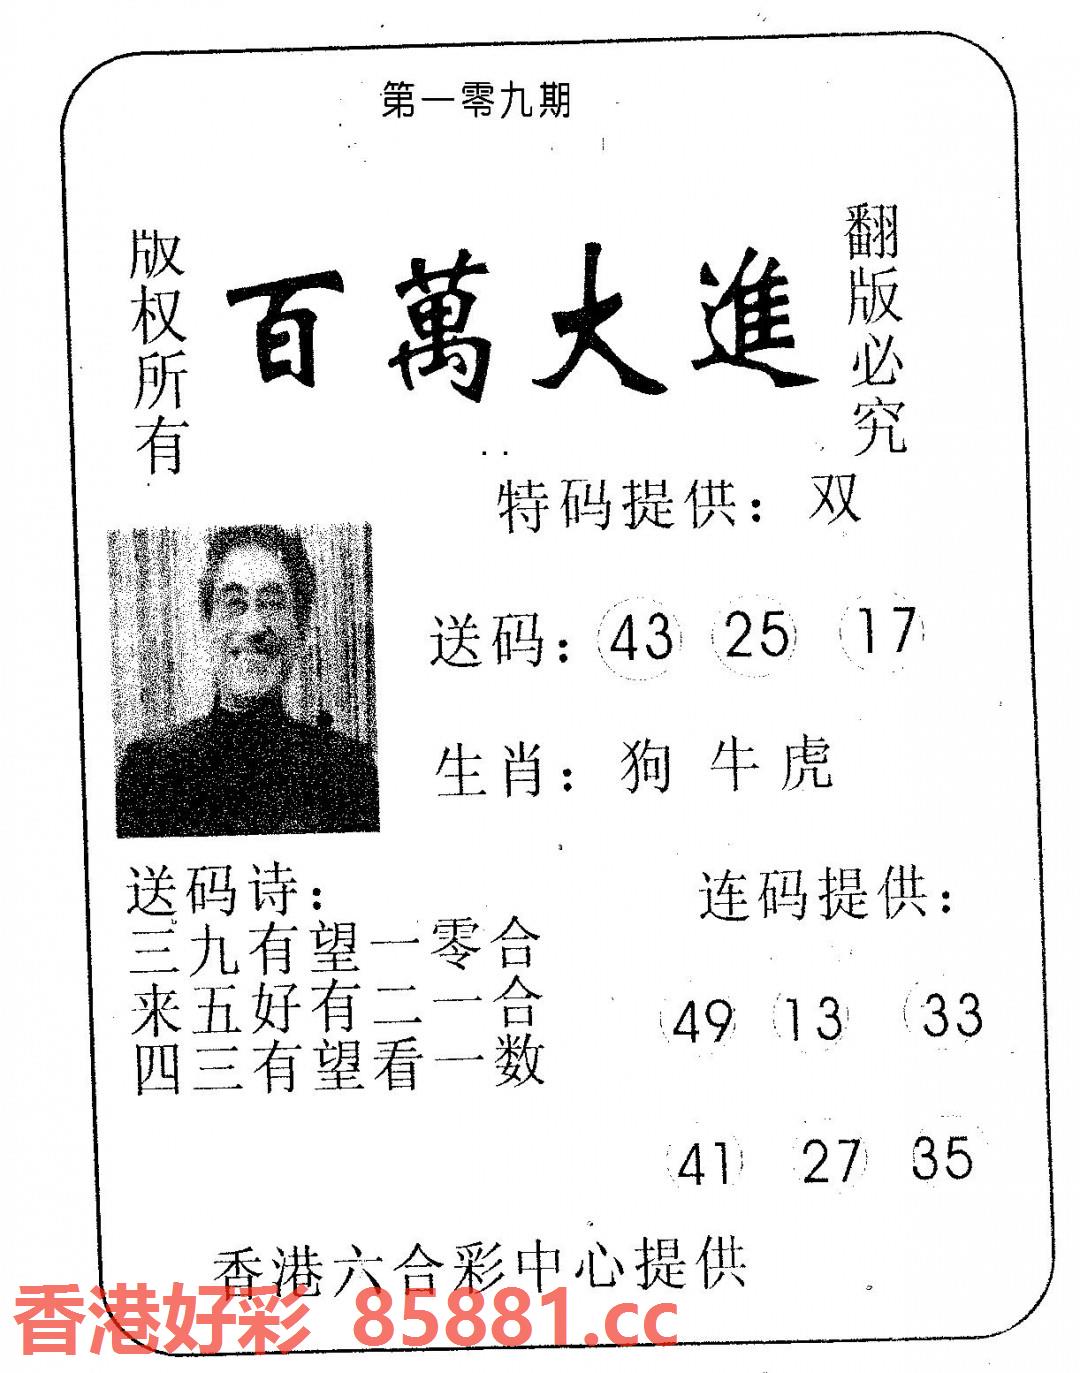 第一零九期
版权所有
百萬大進
翻版必究
特码提供：双
送码：43 25 17
生肖：狗 牛 虎
送码诗：
三九有望一零合
来五好有二一合
四三有望看一数
连码提供：
49 13 33
41 27 35
香港六合彩中心提供
香港好彩 85881.cc